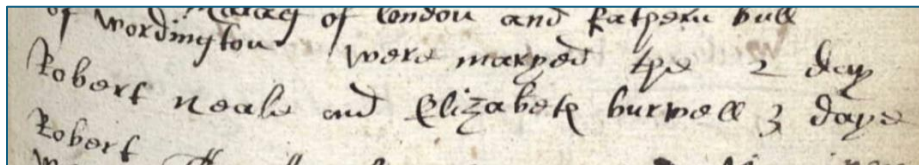 of of london and katheru bull
of wordington were maryed the 2 day
Robert neale and Elizabeth burwell 3 daye
Robert